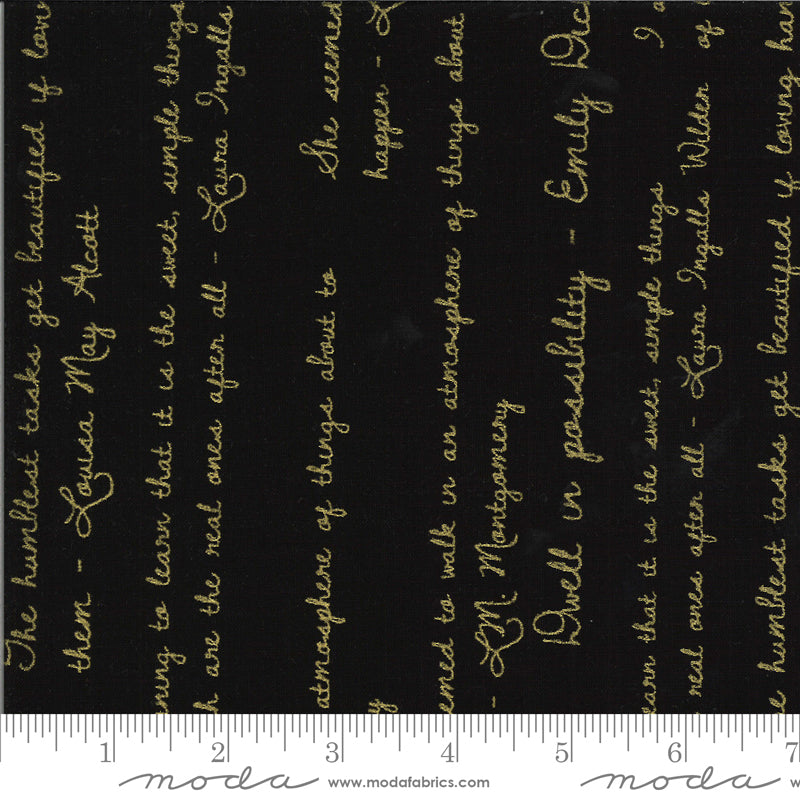 The humblest tasks get beautified if lovi
them - Louisa May Alcott
ning to learn that it is the sweet, simple things
h are the real ones after all - Laura Ingalls
atmosphere of things about to
She seemed
y
happen - L
emed to walk in an atmosphere of things about
- L.M. Montgomery
Dwell in possibility - Emily Dic
earn that it is the sweet, simple things
I a
real ones after all - Laura Ingalls Wilder
of
e humblest tasks get beautified if loving han
1 2 3 4 5 6 7
moda www.modafabrics.com moda w